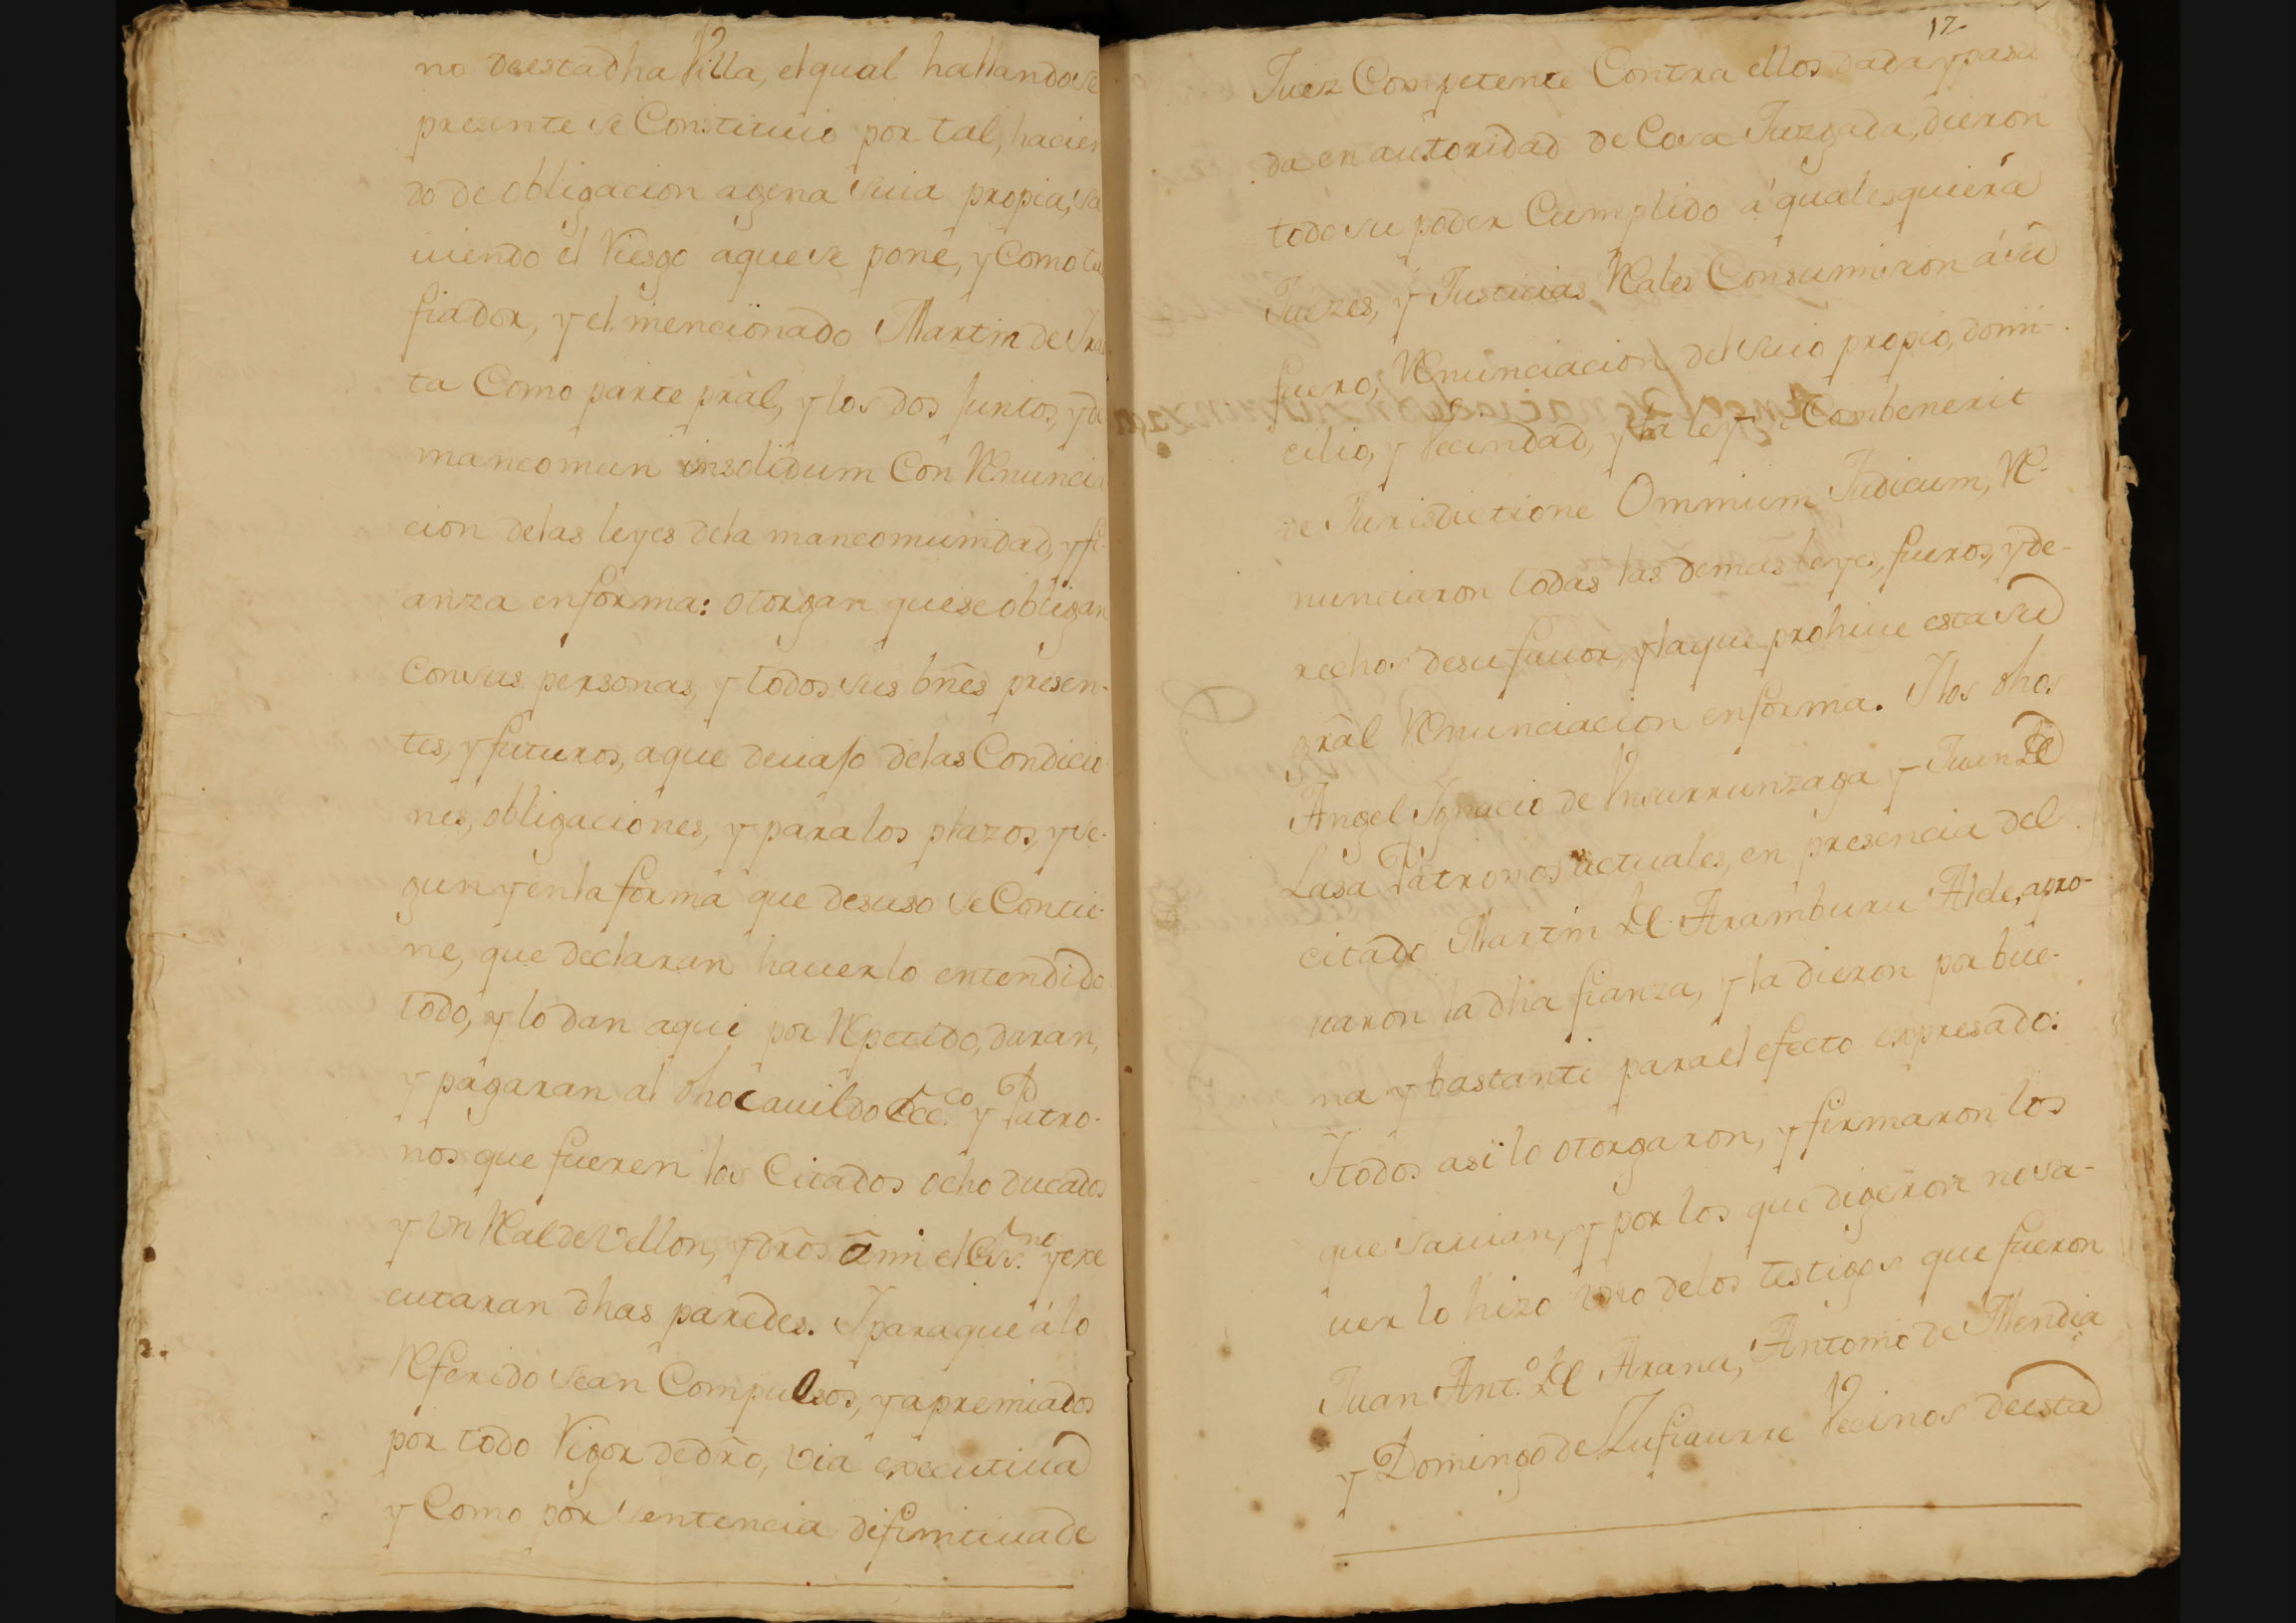 no deesta dha Villa, el qual hallandose
presente se Constituio por tal, hacien
do de obligacion agena suia propia, sa
uiendo el Riesgo aquese pone, y Como tal
fiador, y el mencionado Martin de
ta Como parte pral, y los dos juntos, y de
mancomun insolidum Con Renuncia
cion delas leyes dela mancomunidad, y fi-
anza enforma: otorgan quese obligan
Consus personas, y todos sus bñes presen-
tes, y futuros, aque deuajo delas Condicio
nes, obligaciones, y para los plazos, y se-
gun y enla forma que desuso se Contie-
ne, que declaran hauerlo entendido
todo, y lo dan aqui por Repetido, daran,
y pagaran al dho Cauildo Ecc.co y Patro-
nos que fueren los Citados ocho ducados
y Vn Real de Vellon, y dros a mi el Ess.no y exe
cutaran dhas paredes. Y paraque á lo
Referido sean Compulsos, y apremiados
por todo Rigor de dro, via executiua
y Como por sentencia difinitiua de
12
Juez Competente Contra ellos dada y pasa
da en autoridad de Cosa Juzgada, dieron
todo su poder Cumplido á qualesquiera
Juezes, y Justicias Rales Consumision á su
fuero, Renunciacion del suio propio, domi-
cilio, y Vecindad, y la ley si Combenerit
de Jurisdictione Ommium Judicum, Re-
nunciaron todas las demas leyes, fueros, y de-
rechos desu fauor, y la que prohiue esta su
gral Renunciacion enforma. Y los dhos
Angel Ygnacio de Ynsurrunzaga y Juan de
Lasa Patronos actuales, en presencia del
citado Martin de Aramburu Alde, apro-
uaron la dha fianza, y la dieron por bue-
na y bastante para el efecto expresado:
Y todos asi lo otorgaron, y firmaron los
que sauian, y por los que digeron no sa-
uer lo hizo vno delos testigos que fueron
Juan Ant.o de Arana, Antonio de Mendia
y Domingo de Zufiaurre Vecinos deesta